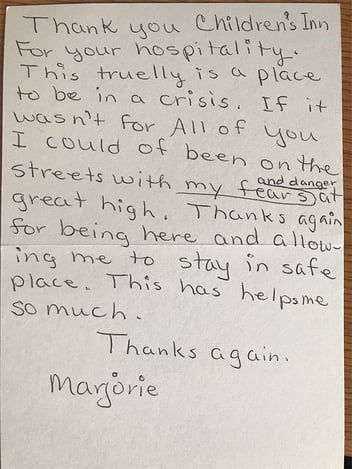 Thank you Children's Inn
For your hospitality.
This truelly is a place
to be in a crisis. If it
wasn't for All of you
I could of been on the
streets with my fears and danger at
great high. Thanks again
for being here and allow-
ing me to stay in safe
place. This has helpsme
so much.
Thanks again.
Marjorie